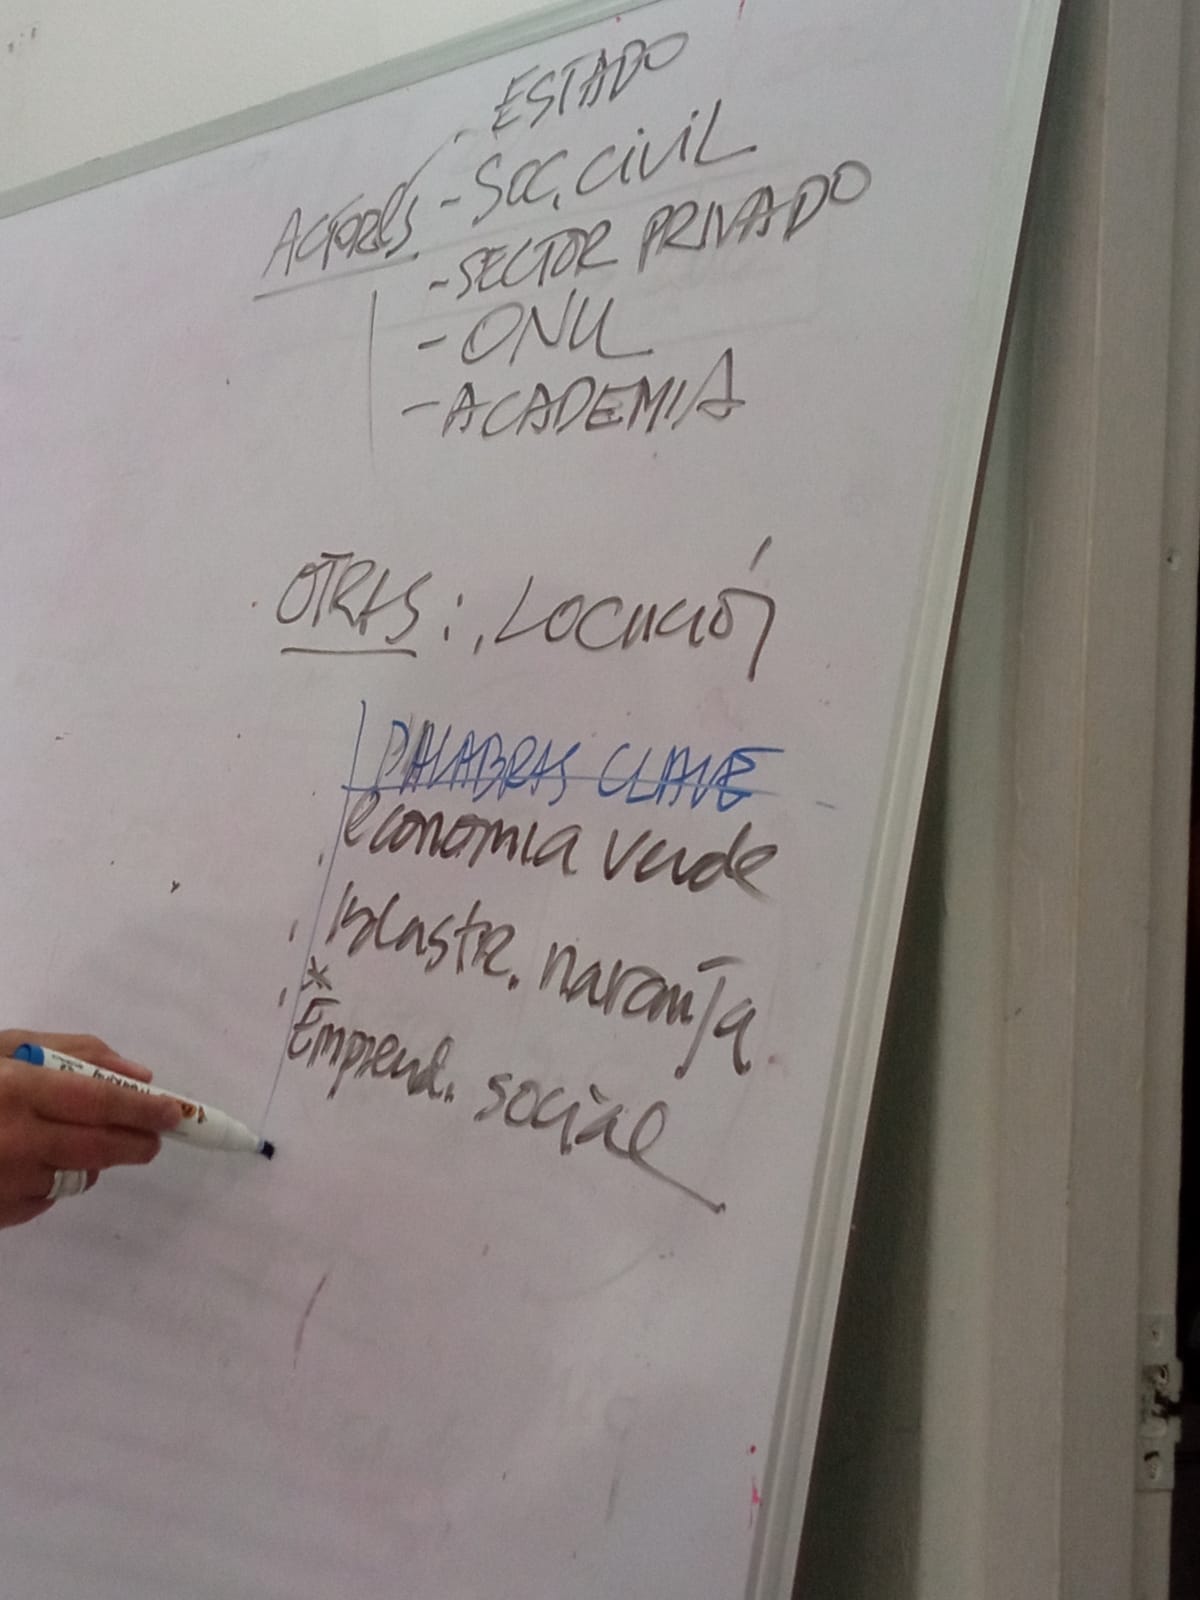 - ESTADO
ACTORES - SOC. CIVIL
- SECTOR PRIVADO
- ONU
- ACADEMIA
OTRAS: . LOCUCIÓN
PALABRAS CLAVE
economia verde
naranja
* Emprend. social